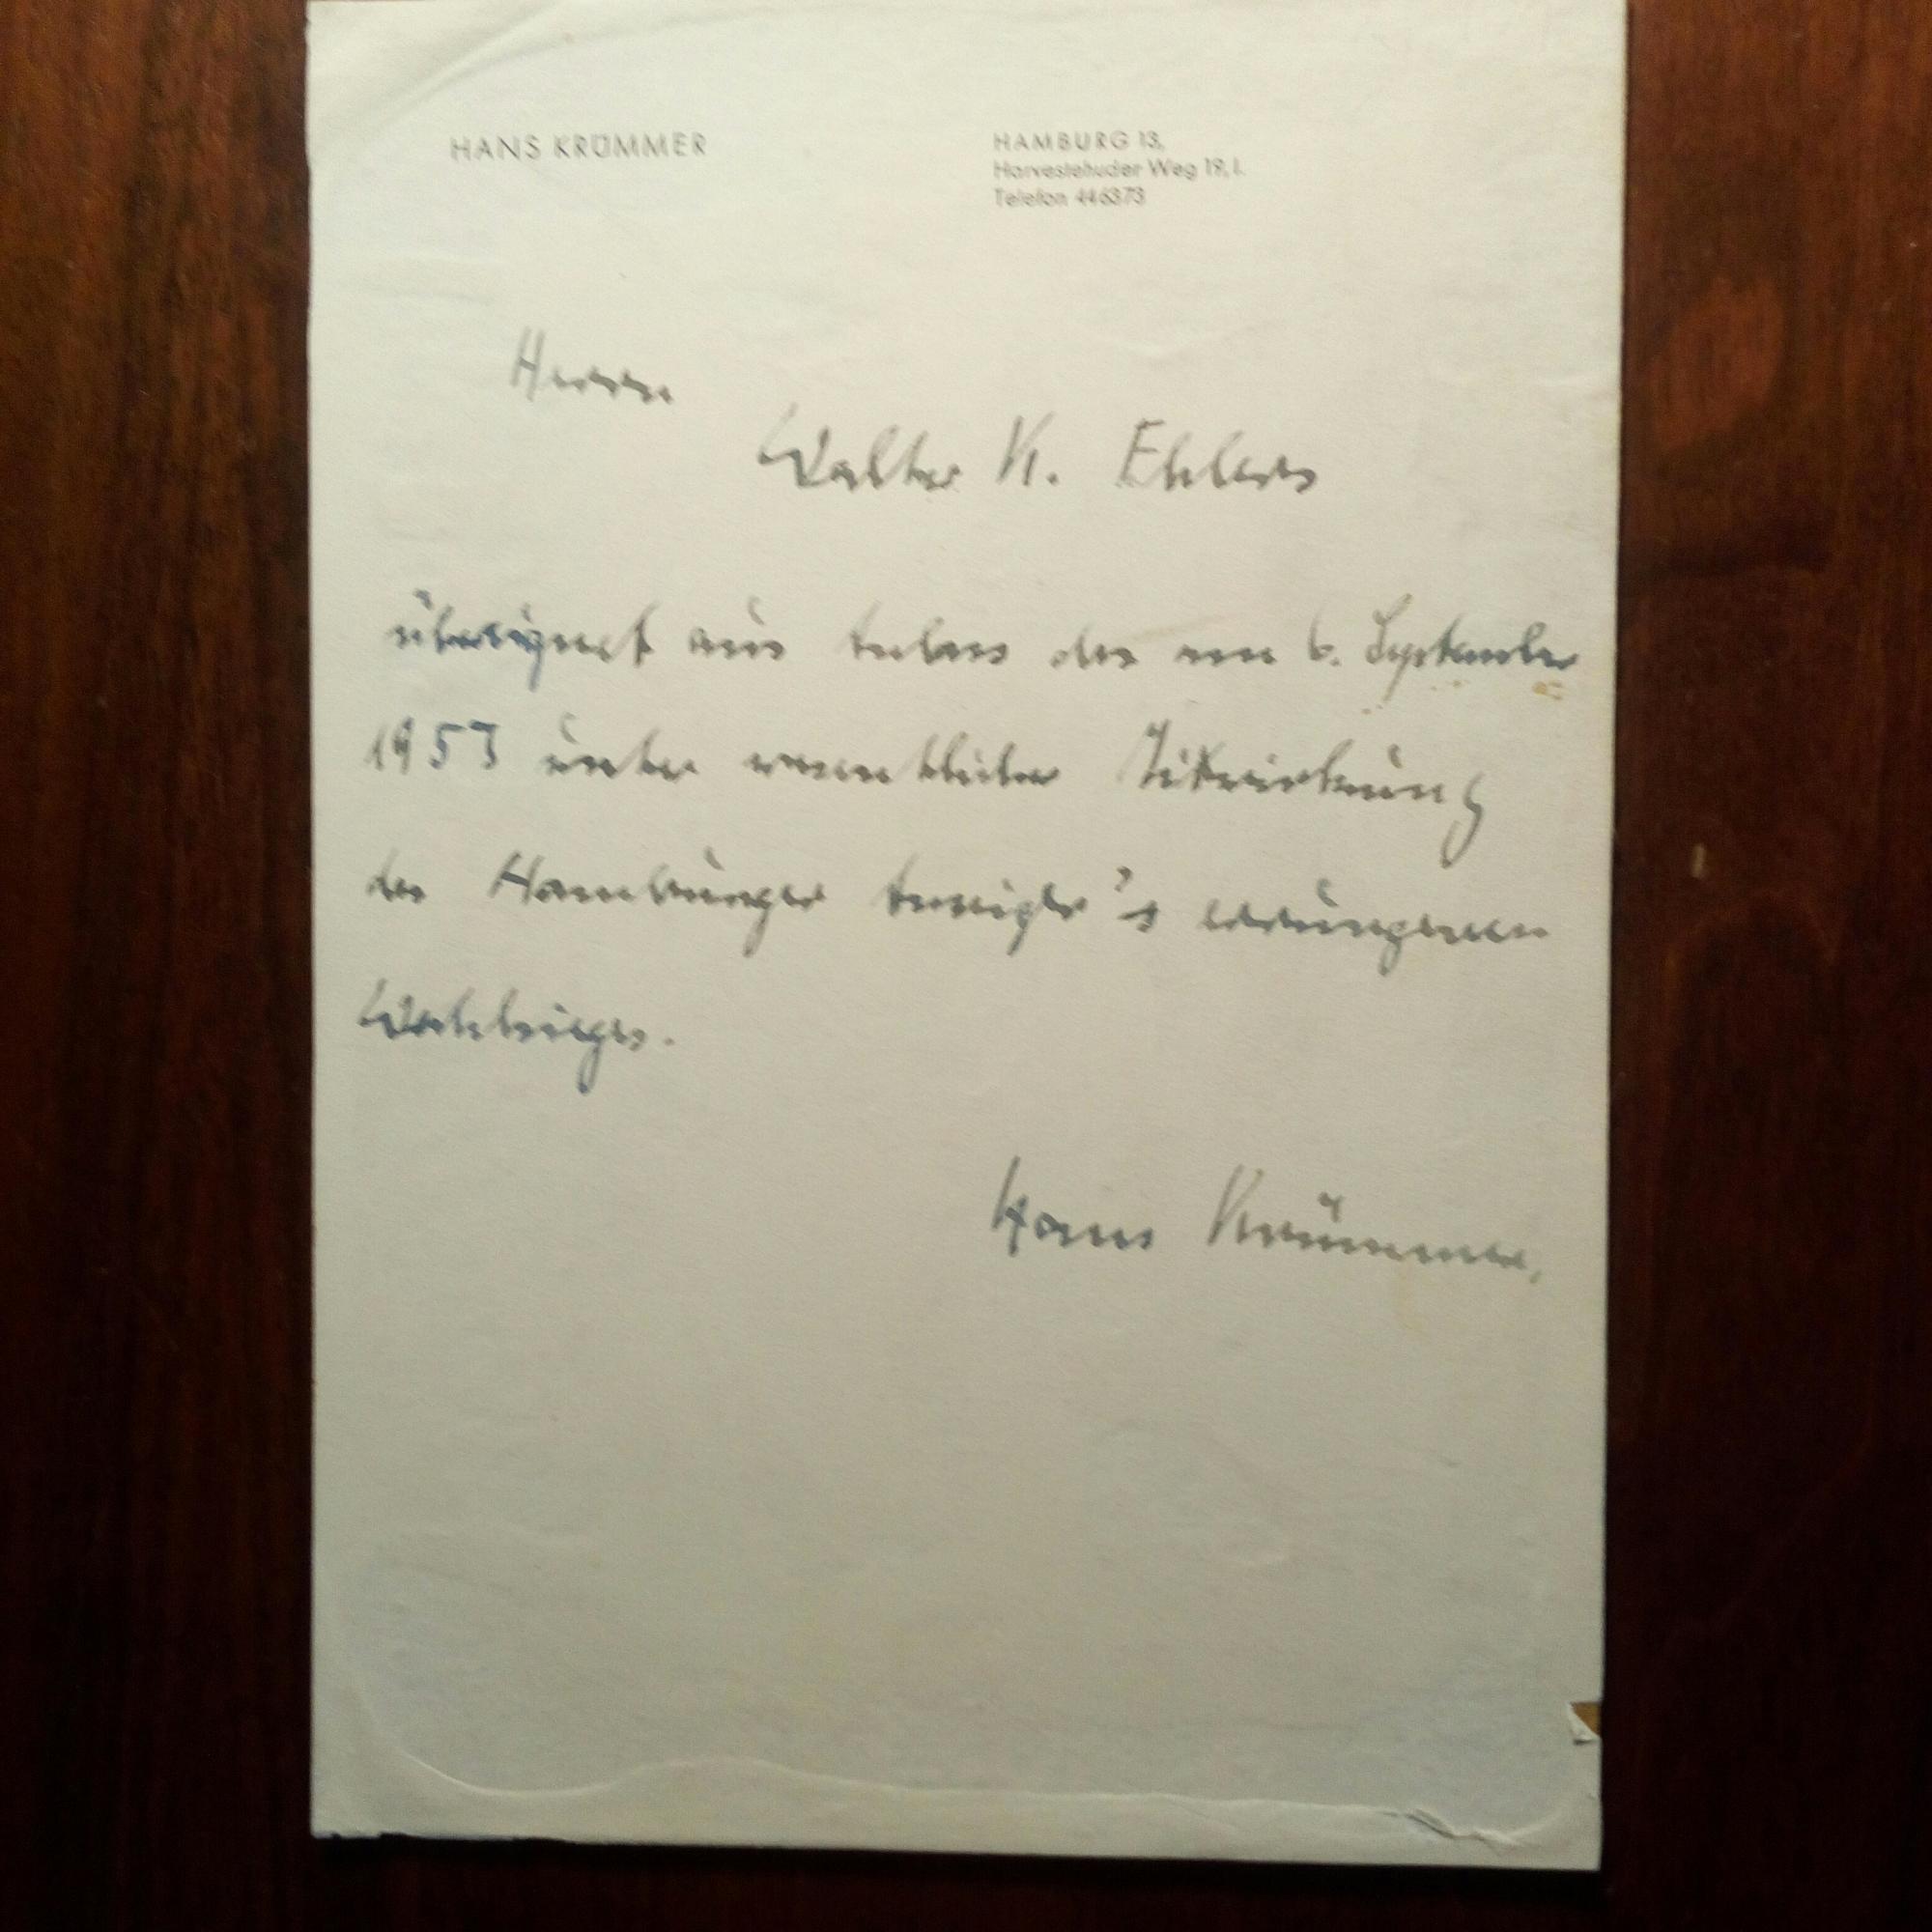 HANS KRÜMMER
HAMBURG 13,
Harvestehuder Weg 19, I.
Telefon 446373
Herrn
Walter K. Ehlers
übereignet aus Anlass des am 6. September
1953 unter wesentlicher Mitwirkung
des Hamburger Anzeiger's errungenen
Wahlsieges.
Hans Krümmer.